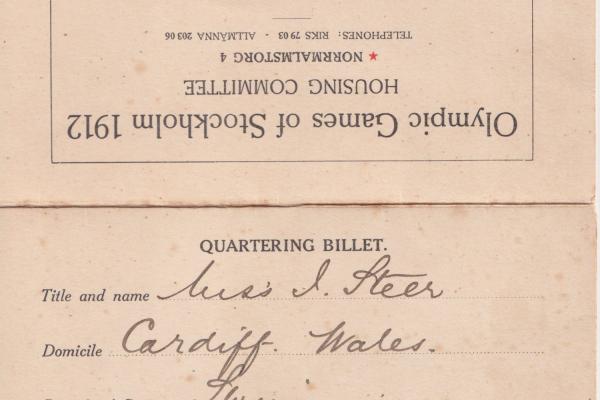 Olympic Games of Stockholm 1912
HOUSING COMMITTEE
★ NORRMALMSTORG 4
TELEPHONES: RIKS 79 03 - ALLMÄNNA 203 06
QUARTERING BILLET.
Title and name Miss I. Steer
Domicile Cardiff. Wales.